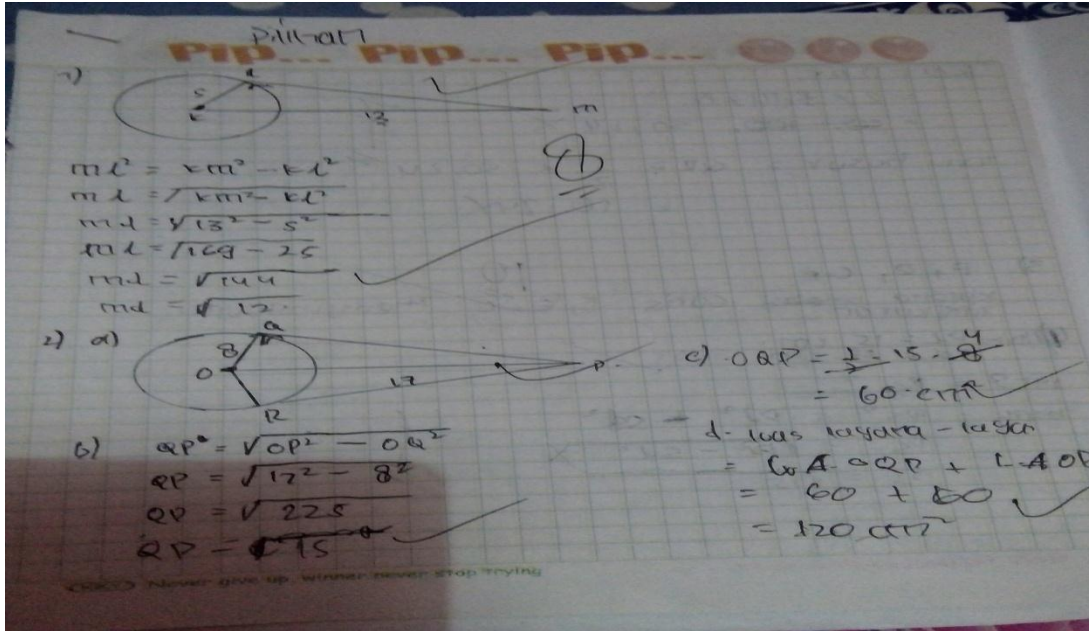 Pilihan
Pip... Pip... Pip...
1)
5
13
m
ml² = km² - kl²
ml = √km² - kl²
ml = √13² - 5²
ml = √169 - 25
ml = √144
ml = √12
2) a)
Q
8
O
17
P
R
b) QP = √OP² - OQ²
QP = √17² - 8²
QP = √225
QP = 15
c) OQP = 1/2 . 15 . 8 4
= 60 cm²
d. luas layang - layang
= L Δ OQP + L Δ OP
= 60 + 60
= 120 cm²
Never give up, winner never stop trying